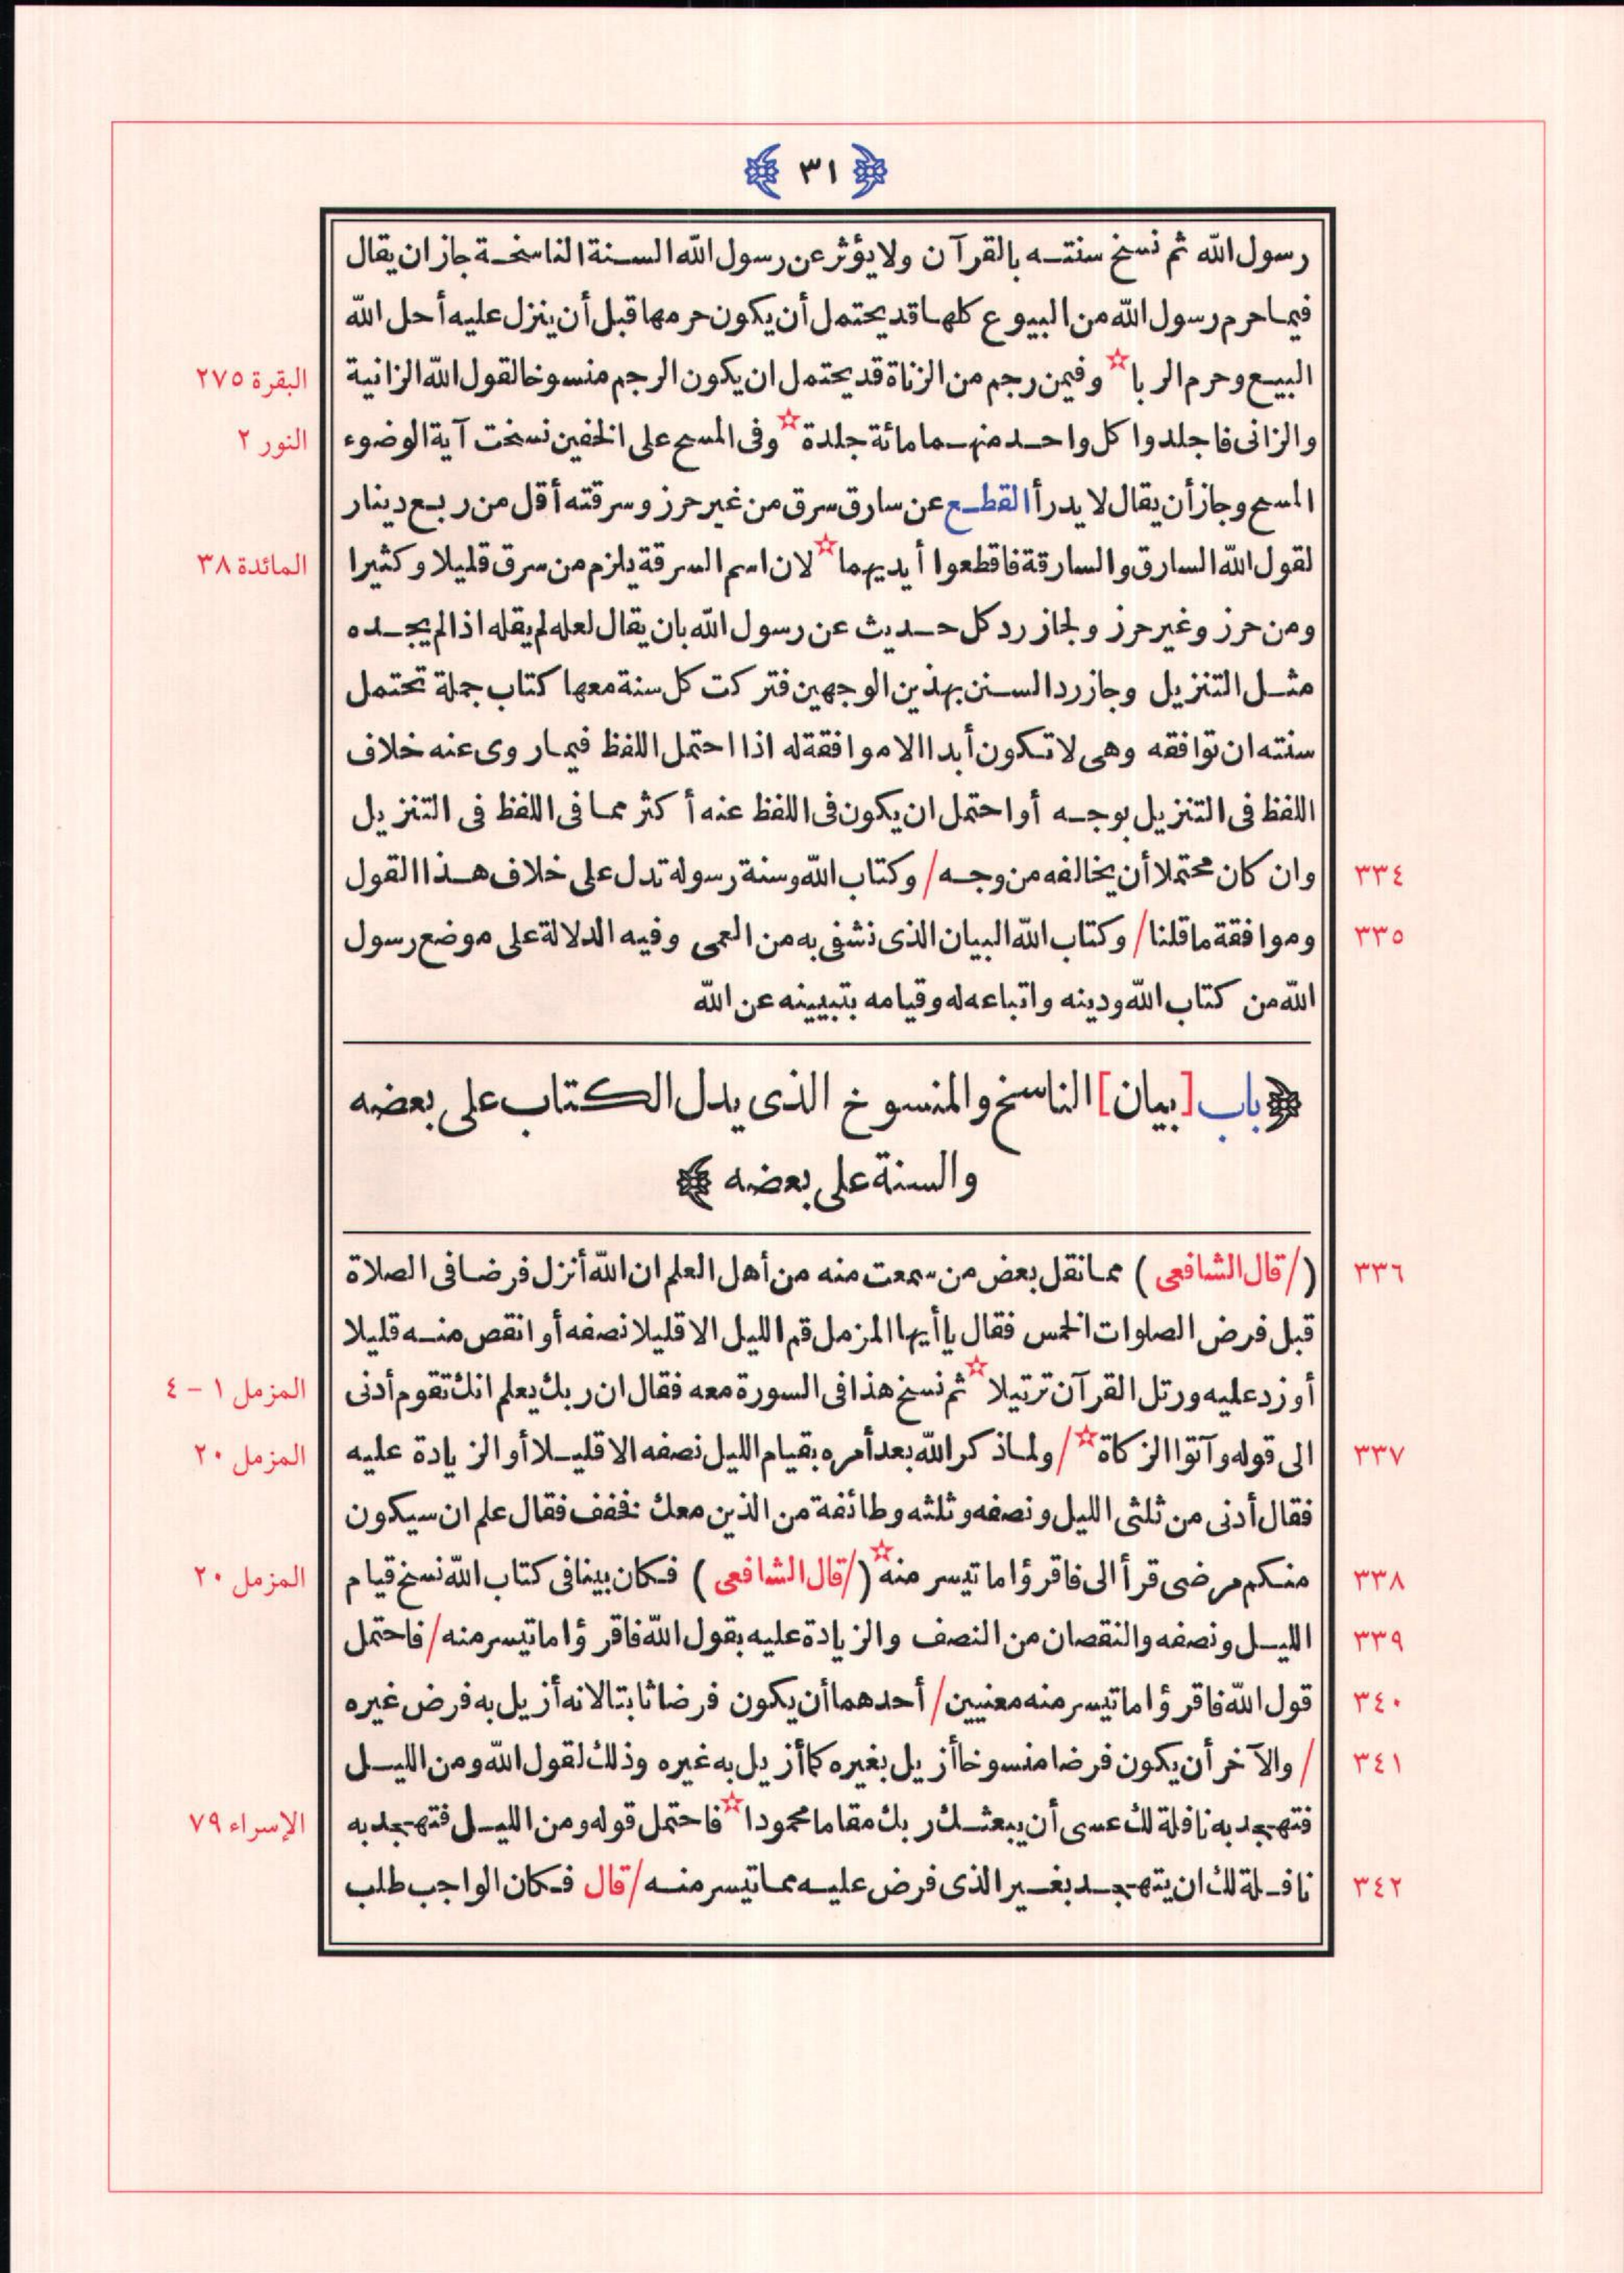 ﴿ ٣١ ﴾
رسول الله ثم نسخ سنته بالقرآن ولا يؤثر عن رسول الله السنة الناسخة جاز ان يقال
فيما حرم رسول الله من البيوع كلها قد يحتمل أن يكون حرمها قبل أن ينزل عليه أحل الله
البيع وحرم الربا☆ وفيمن رجم من الزناة قد يحتمل ان يكون الرجم منسوخا لقول الله الزانية البقرة ٢٧٥
والزانى فاجلدوا كل واحد منهما مائة جلدة☆ وفى المسح على الخفين نسخت آية الوضوء النور ٢
المسح وجاز أن يقال لا يدرأ القطع عن سارق سرق من غير حرز وسرقته أقل من ربع دينار
لقول الله السارق والسارقة فاقطعوا أيديهما☆ لان اسم السرقة يلزم من سرق قليلا وكثيرا المائدة ٣٨
ومن حرز وغير حرز ولجاز رد كل حديث عن رسول الله بان يقال لعله لم يقله اذا لم يجده
مثل التنزيل وجاز رد السنن بهذين الوجهين فتركت كل سنة معها كتاب جملة تحتمل
سنته ان توافقه وهى لا تكون أبدا الا موافقة له اذا احتمل اللفظ فيما روى عنه خلاف
اللفظ فى التنزيل بوجه أو احتمل ان يكون فى اللفظ عنه أكثر مما فى اللفظ فى التنزيل
٣٣٤ وان كان محتملا أن يخالفه من وجه / وكتاب الله وسنة رسوله تدل على خلاف هذا القول
٣٣٥ وموافقة ما قلنا / وكتاب الله البيان الذى نشفى به من العمى وفيه الدلالة على موضع رسول
الله من كتاب الله ودينه واتباعه له وقيامه بتبيينه عن الله
﴿ باب [بيان] الناسخ والمنسوخ الذى يدل الكتاب على بعضه
والسنة على بعضه ﴾
٣٣٦ (/ قال الشافعى) مما نقل بعض من سمعت منه من أهل العلم ان الله أنزل فرضا فى الصلاة
قبل فرض الصلوات الخمس فقال يا أيها المزمل قم الليل الا قليلا نصفه أو انقص منه قليلا
أو زد عليه ورتل القرآن ترتيلا☆ ثم نسخ هذا فى السورة معه فقال ان ربك يعلم انك تقوم أدنى المزمل ١ - ٤
٣٣٧ الى قوله وآتوا الزكاة☆ / ولما ذكر الله بعد أمره بقيام الليل نصفه الا قليلا أو الزيادة عليه المزمل ٢٠
فقال أدنى من ثلثى الليل ونصفه وثلثه وطائفة من الذين معك فخفف فقال علم ان سيكون
٣٣٨ منكم مرضى قرأ الى فاقرؤا ما تيسر منه☆ (/ قال الشافعى) فكان بينا فى كتاب الله نسخ قيام المزمل ٢٠
٣٣٩ الليل ونصفه والنقصان من النصف والزيادة عليه بقول الله فاقرؤا ما تيسر منه / فاحتمل
٣٤٠ قول الله فاقرؤا ما تيسر منه معنيين / أحدهما أن يكون فرضا ثابتا لانه أزيل به فرض غيره
٣٤١ / والآخر أن يكون فرضا منسوخا أزيل بغيره كما أزيل به غيره وذلك لقول الله ومن الليل
فتهجد به نافلة لك عسى أن يبعثك ربك مقاما محمودا☆ فاحتمل قوله ومن الليل فتهجد به الإسراء ٧٩
٣٤٢ نافلة لك ان يتهجد بغير الذى فرض عليه مما تيسر منه / قال فكان الواجب طلب